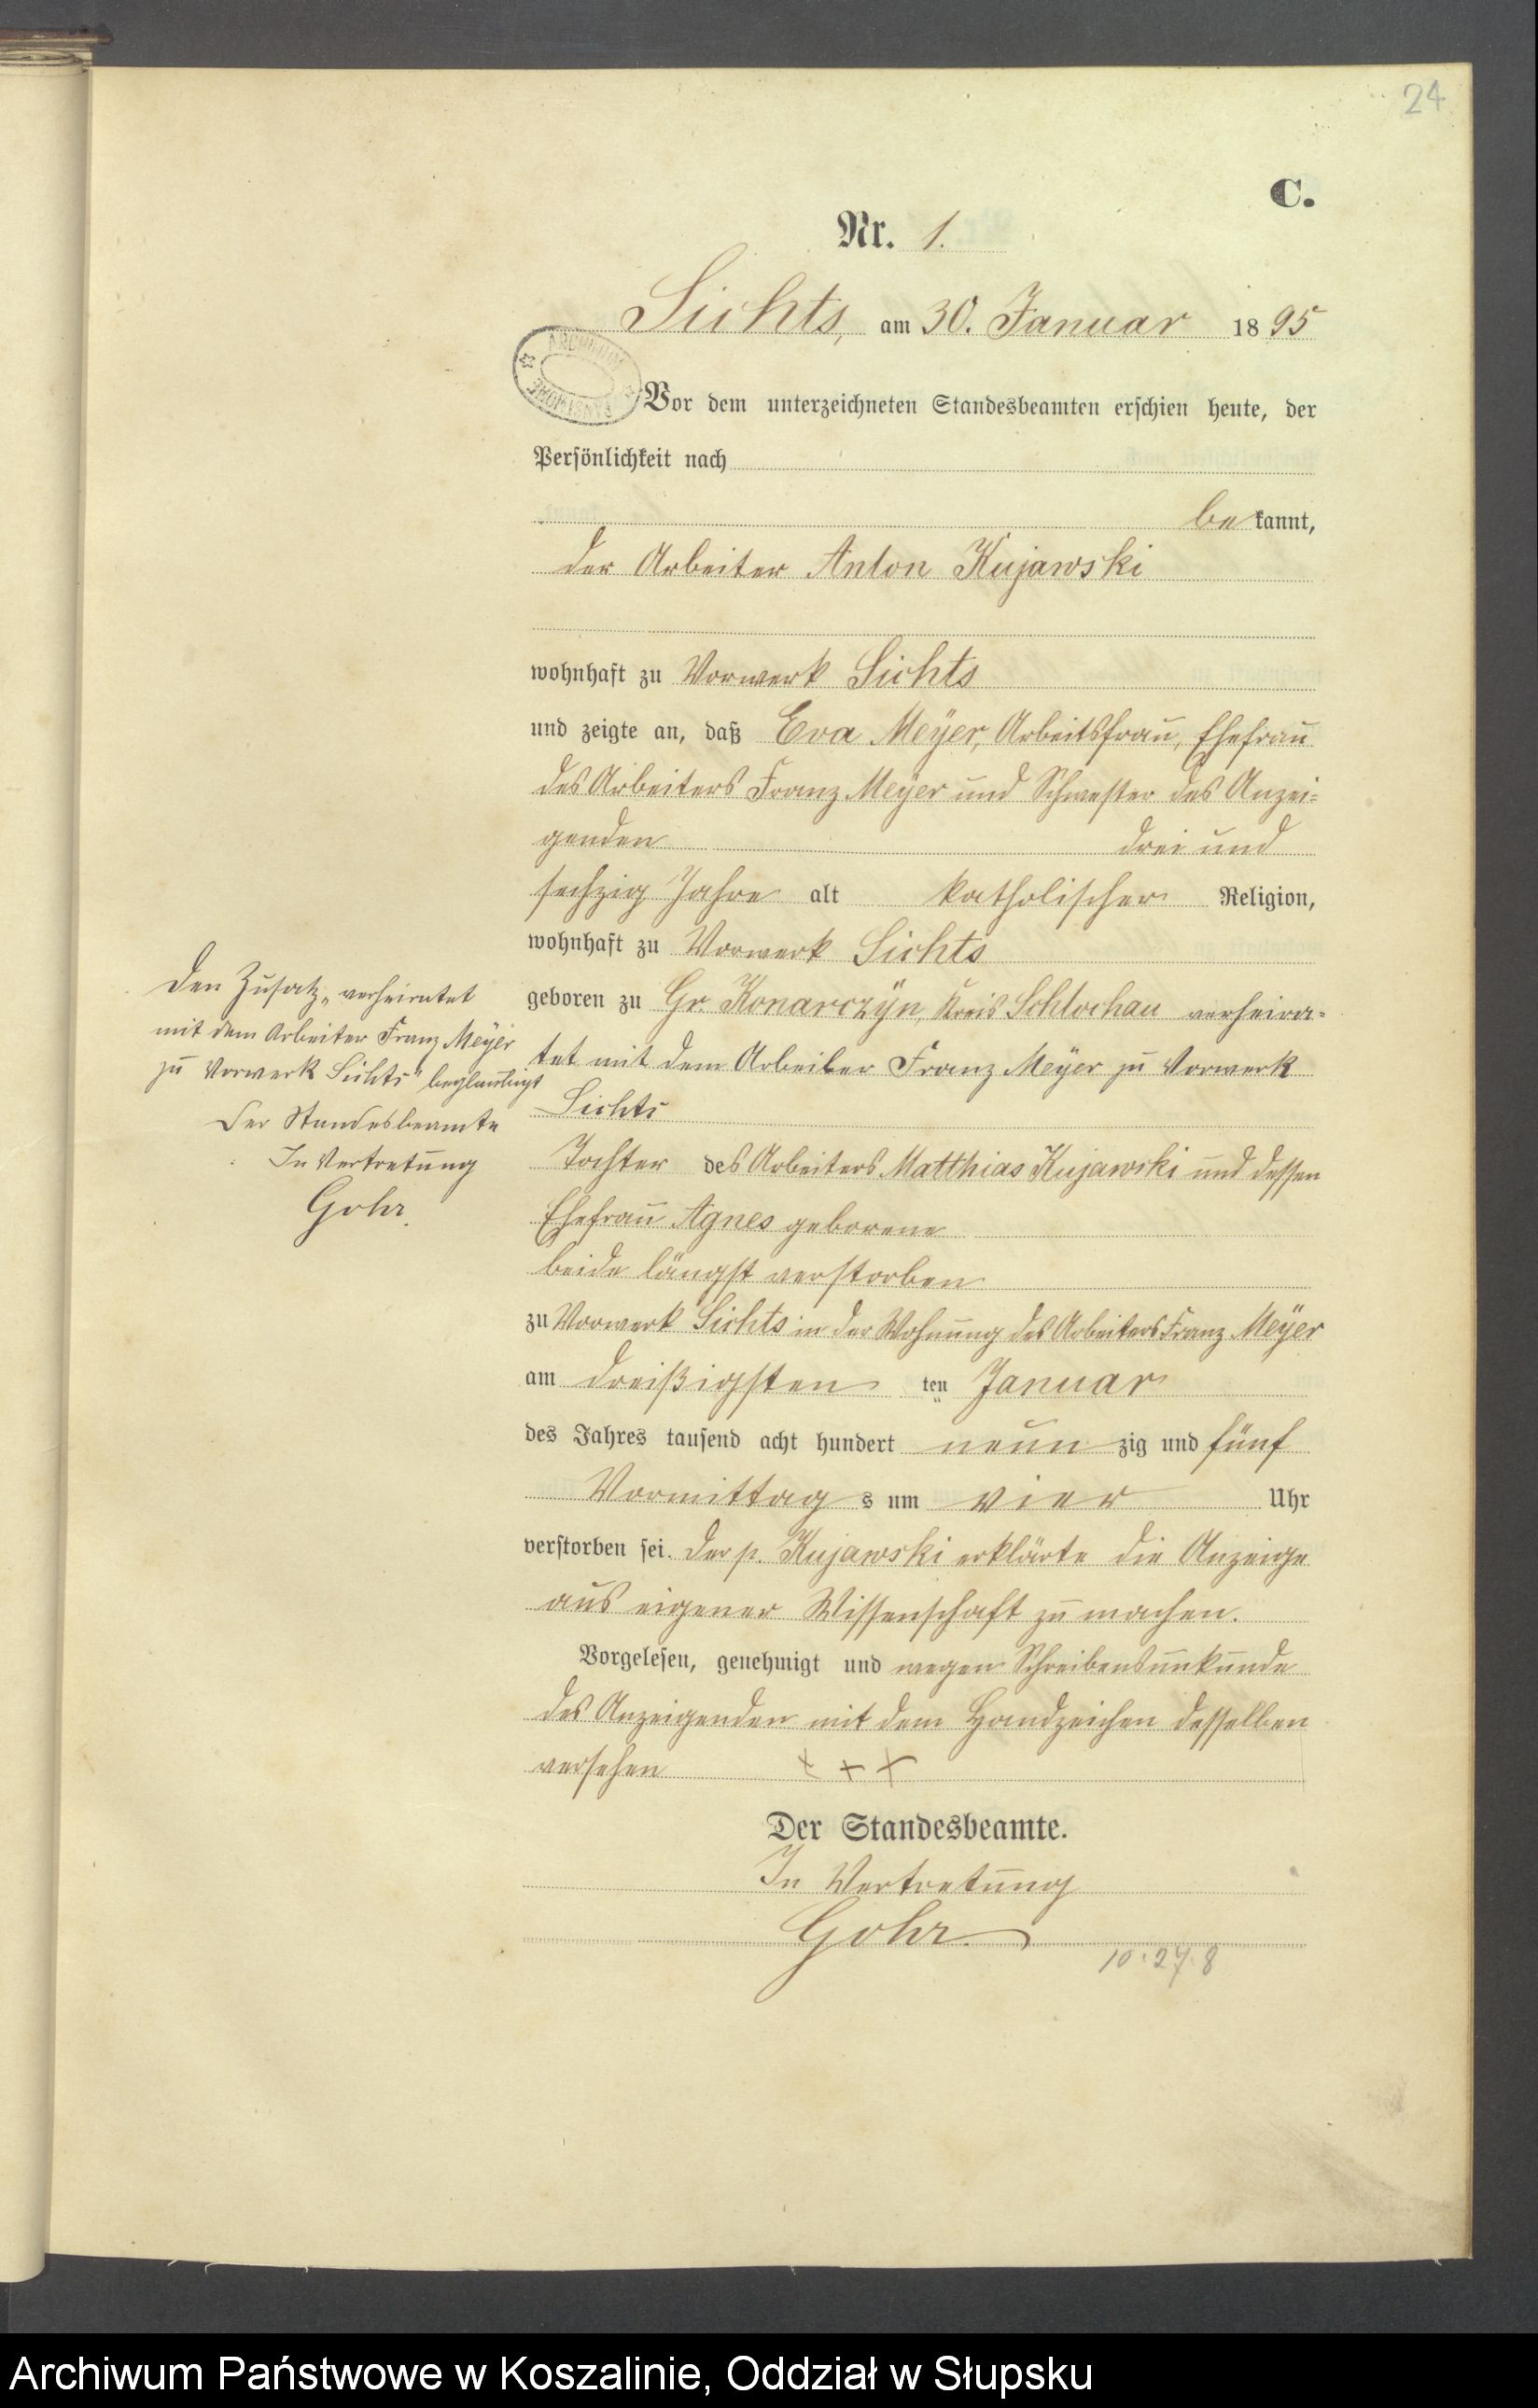 24
C.
Nr. 1.
Sichts, am 30. Januar 1895
Vor dem unterzeichneten Standesbeamten erschien heute, der
Persönlichkeit nach
bekannt,
der Arbeiter Anton Kujawski
wohnhaft zu Vorwerk Sichts
und zeigte an, daß Eva Meÿer, Arbeitsfrau, Ehefrau
des Arbeiters Franz Meÿer und Schwester des Anzei-
genden drei und
sechzig Jahre alt katholischer Religion,
wohnhaft zu Vorwerk Sichts
geboren zu Gr. Konarczÿn, Kreis Schlochau verheira-
tet mit dem Arbeiter Franz Meÿer zu Vorwerk
Sichts
Tochter des Arbeiters Matthias Kujawski und dessen
Ehefrau Agnes geborene
beide längst verstorben
zu Vorwerk Sichts in der Wohnung des Arbeiters Franz Meÿer
am dreißigsten ten Januar
des Jahres tausend acht hundert neunzig und fünf
Vormittags um vier Uhr
verstorben sei. Der p. Kujawski erklärte die Anzeige
aus eigener Wissenschaft zu machen.
Vorgelesen, genehmigt und wegen Schreibensunkunde
des Anzeigenden mit dem Handzeichen desselben
versehen + + +
Der Standesbeamte.
In Vertretung
Gohr.
10.27.8
Den Zusatz „verheiratet
mit dem Arbeiter Franz Meÿer
zu Vorwerk Sichts" beglaubigt
Der Standesbeamte
In Vertretung
Gohr.
Archiwum Państwowe w Koszalinie, Oddział w Słupsku